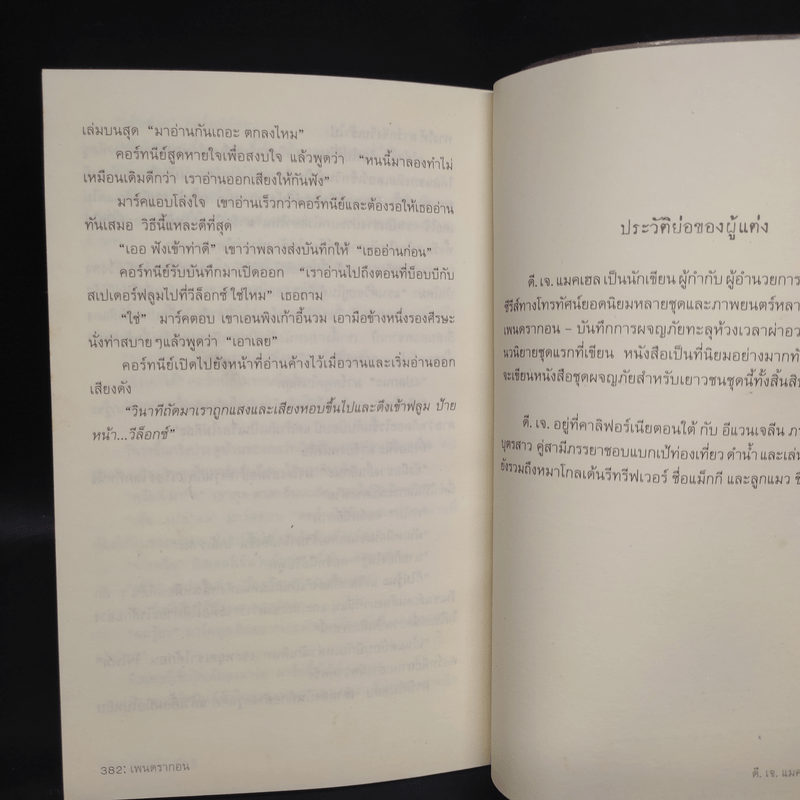 เล่มบนสุด “มาอ่านกันเถอะ ตกลงไหม”
คอร์ทนีย์สูดหายใจเพื่อสงบใจ แล้วพูดว่า “หนนี้มาลองทำไม่
เหมือนเดิมดีกว่า เราอ่านออกเสียงให้กันฟัง”
มาร์คแอบโล่งใจ เขาอ่านเร็วกว่าคอร์ทนีย์และต้องรอให้เธออ่าน
ทันเสมอ วิธีนี้แหละดีที่สุด
“เออ ฟังเข้าท่าดี” เขาว่าพลางส่งบันทึกให้ “เธออ่านก่อน”
คอร์ทนีย์รับบันทึกมาเปิดออก “เราอ่านไปถึงตอนที่บ็อบบีกับ
สเปเดอร์ฟลูมไปที่วีล็อกซ์ ใช่ไหม” เธอถาม
“ใช่” มาร์คตอบ เขาเอนพิงเก้าอี้นวม เอามือข้างหนึ่งรองศีรษะ
นั่งท่าสบาย ๆ แล้วพูดว่า “เอาเลย”
คอร์ทนีย์เปิดไปยังหน้าที่อ่านค้างไว้เมื่อวานและเริ่มอ่านออก
เสียงดัง
“วินาทีถัดมาเราถูกแสงและเสียงหอบขึ้นไปและดึงเข้าฟลูม ป้าย
หน้า...วีล็อกซ์”
382: เพนดรากอน
ประวัติย่อของผู้แต่ง
ดี. เจ. แมคเฮล เป็นนักเขียน ผู้กำกับ ผู้อำนวยการ
ซีรีส์ทางโทรทัศน์ยอดนิยมหลายชุดและภาพยนตร์หลา
เพนดรากอน – บันทึกการผจญภัยทะลุห้วงเวลาผ่าอว
นวนิยายชุดแรกที่เขียน หนังสือเป็นที่นิยมอย่างมากทั
จะเขียนหนังสือชุดผจญภัยสำหรับเยาวชนชุดนี้ทั้งสิ้นสิ
ดี. เจ. อยู่ที่คาลิฟอร์เนียตอนใต้ กับ อีแวนเจลีน ภร
บุตรสาว คู่สามีภรรยาชอบแบกเป้ท่องเที่ยว ดำน้ำ และเล่น
ยังรวมถึงหมาโกลเด้นรีทรีฟเวอร์ ชื่อแม็กกี และลูกแมว ชื
ดี. เจ. แมค